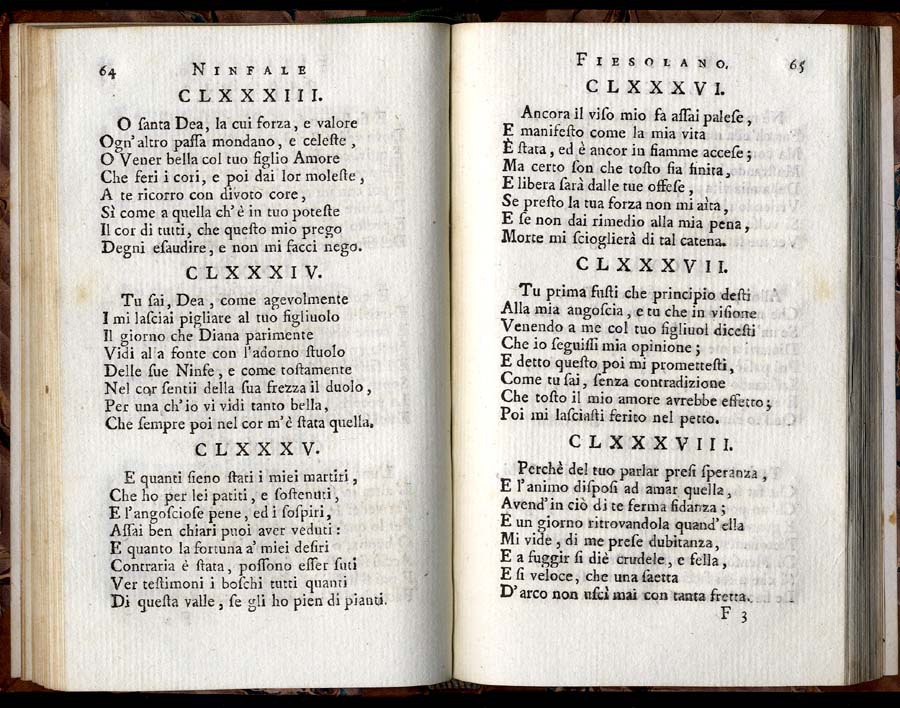 64 NINFALE
CLXXXIII.
O ſanta Dea, la cui forza, e valore
Ogn'altro paſſa mondano, e celeſte,
O Vener bella col tuo figlio Amore
Che feri i cori, e poi dai lor moleſte,
A te ricorro con divoto core,
Sì come a quella ch'è in tuo poteſte
Il cor di tutti, che queſto mio prego
Degni eſaudire, e non mi facci nego.
CLXXXIV.
Tu ſai, Dea, come agevolmente
I mi laſciai pigliare al tuo figliuolo
Il giorno che Diana parimente
Vidi al a fonte con l'adorno ſtuolo
Delle ſue Ninfe, e come toſtamente
Nel cor ſentii della ſua frezza il duolo,
Per una ch'io vi vidi tanto bella,
Che ſempre poi nel cor m'è ſtata quella.
CLXXXV.
E quanti ſieno ſtati i miei martiri,
Che ho per lei patiti, e ſoſtenuti,
E l'angoſcioſe pene, ed i ſoſpiri,
Aſſai ben chiari puoi aver veduti:
E quanto la fortuna a' miei deſiri
Contraria è ſtata, poſſono eſſer ſuti
Ver teſtimoni i boſchi tutti quanti
Di queſta valle, ſe gli ho pien di pianti.
FIESOLANO. 65
CLXXXVI.
Ancora il viſo mio fa aſſai paleſe,
E manifeſto come la mia vita
È ſtata, ed è ancor in fiamme acceſe;
Ma certo ſon che toſto ſia finita,
E libera ſarà dalle tue offeſe,
Se preſto la tua forza non mi aìta,
E ſe non dai rimedio alla mia pena,
Morte mi ſcioglierà di tal catena.
CLXXXVII.
Tu prima fuſti che principio deſti
Alla mia angoſcia, e tu che in viſione
Venendo a me col tuo figliuol diceſti
Che io ſeguiſſi mia opinione;
E detto queſto poi mi prometteſti,
Come tu ſai, ſenza contradizione
Che toſto il mio amore avrebbe effetto;
Poi mi laſciaſti ferito nel petto.
CLXXXVIII.
Perchè del tuo parlar preſi ſperanza,
E l'animo diſpoſi ad amar quella,
Avend'in ciò di te ferma fidanza;
E un giorno ritrovandola quand'ella
Mi vide, di me preſe dubitanza,
E a fuggir ſi diè crudele, e fella,
E ſi veloce, che una ſaetta
D'arco non uſcì mai con tanta fretta.
F 3